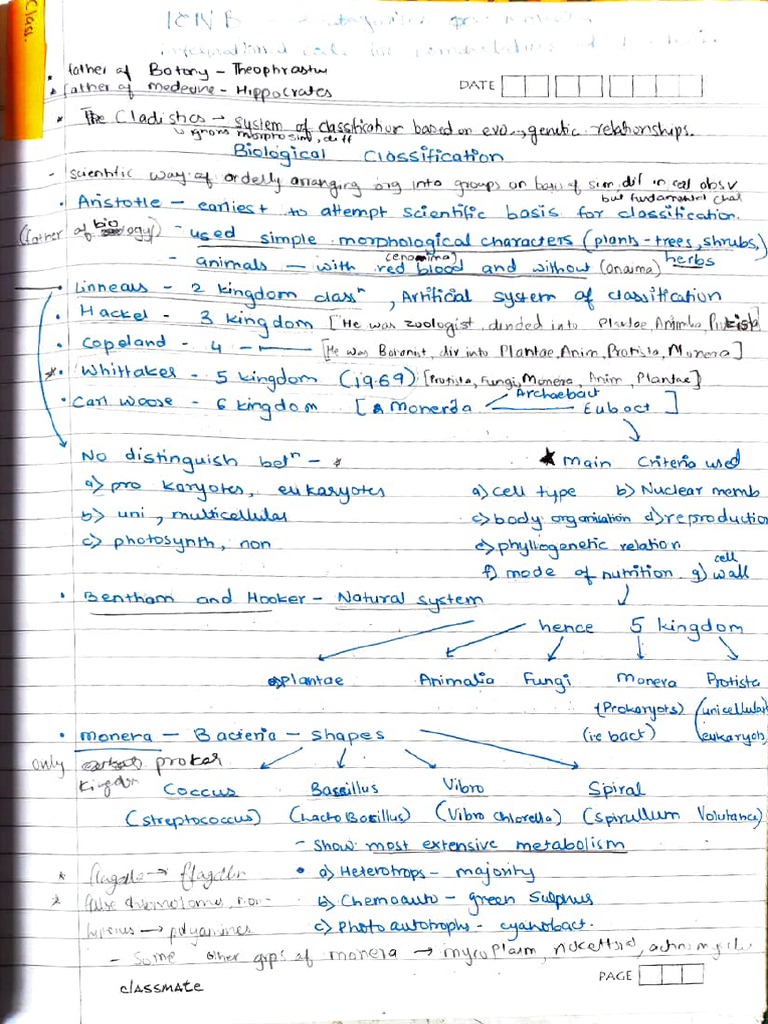 Class.
ICNB
father of Botany - Theophrastu
father of medecine - Hippocrates
DATE
* The Cladistics → system of classification based on evo → genetic relationships.
↳ ignors morpho sim, diff
Biological Classification
- scientific way of orderly arranging org into groups on basis of sim, dif in cal obsv
but fundamental char
• Aristotle - earliest to attempt scientific basis for classification.
(father of biology) - used simple morphological characters (plants - trees, shrubs, herbs
- animals - with red blood (enaima) and without (anaima)
• Linneaus - 2 kingdom classⁿ, Artificial system of classification
• Hackel - 3 kingdom [He was zoologist, divided into Plantae, Animlia, Protista
• Copeland - 4 [He was Botanist, div into Plantae, Anim, Protista, Monera]
* • Whittaker - 5 kingdom (1969) [Protista, Fungi, Monera, Anim, Plantae]
• Carl woose - 6 kingdom [Monerda Archaebact Eubact]
No distinguish betⁿ - *
a) pro karyotes, eukaryotes
b) uni, multicellular
c) photosynth, non
★ main Criteria used
a) cell type b) Nuclear memb
c) body organisation d) reproduction
e) phyllogenetic relation
f) mode of nutrition g) cell wall
• Bentham and Hooker - Natural system
hence 5 kingdom
Plantae Animalia Fungi Monera Protista
(Prokaryots) (unicellular
(ie bact) eukaryots)
• monera - Bacteria - shapes
only prokar
kingdom
Coccus Bacillus Vibro Spiral
(streptococcus) (Lacto Bacillus) (Vibro Chlorella) (Spirullum Volutance)
- Show most extensive metabolism
• a) Heterotrops - majority
b) Chemoauto - green Sulphus
c) Photo autotrophs - cyanobact.
* flagella → flagellin
→ polyamines
- Some other grps of monera → mycoplasm,
classmate
PAGE